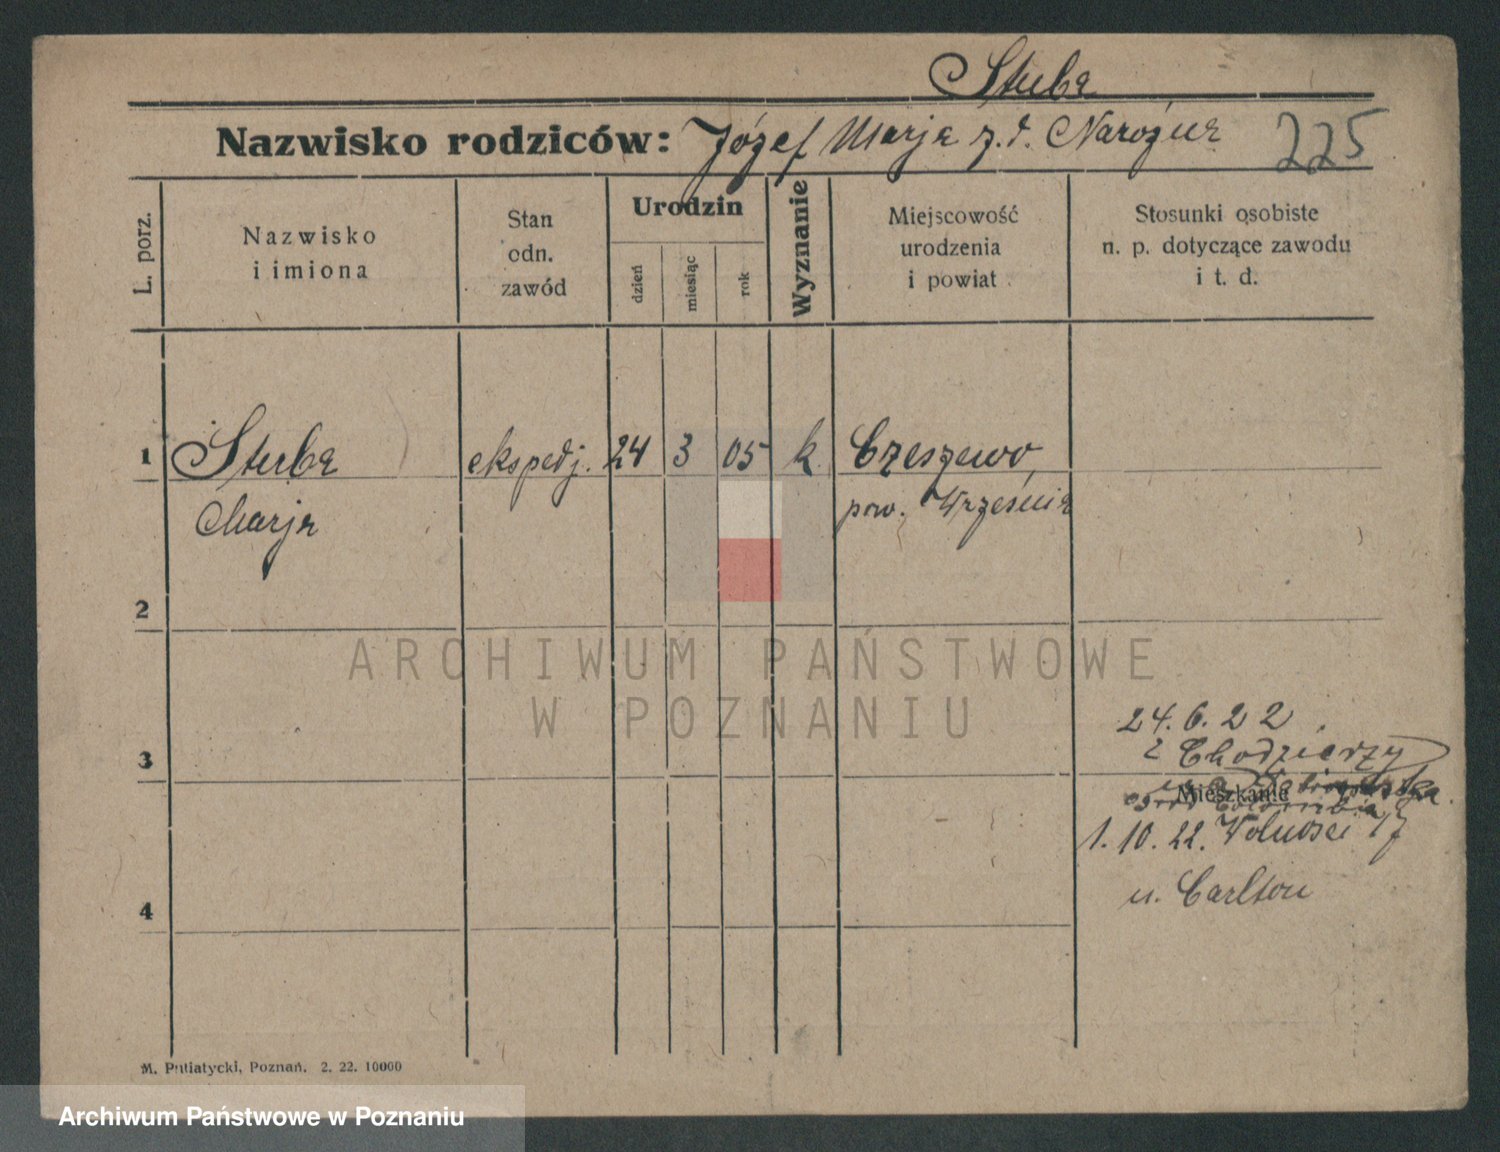 Stuba
Nazwisko rodziców: Józef Marja z. d. Narożna 225
L. porz.
Nazwisko
i imiona
Stan
odn.
zawód
Urodzin
dzień
miesiąc
rok
Wyznanie
Miejscowość
urodzenia
i powiat
Stosunki osobiste
n. p. dotyczące zawodu
i t. d.
1 Stuba ekspedj. 24 3 05 k Czeszewo
Marja pow. Września
2
ARCHIWUM PAŃSTWOWE
W POZNANIU
24. 6. 22
z Chodzieży
3
Mieszkanie
1. 10. 22. Wolności 17
u. Carlton
4
M. Putiatycki, Poznań. 2. 22. 10000
Archiwum Państwowe w Poznaniu